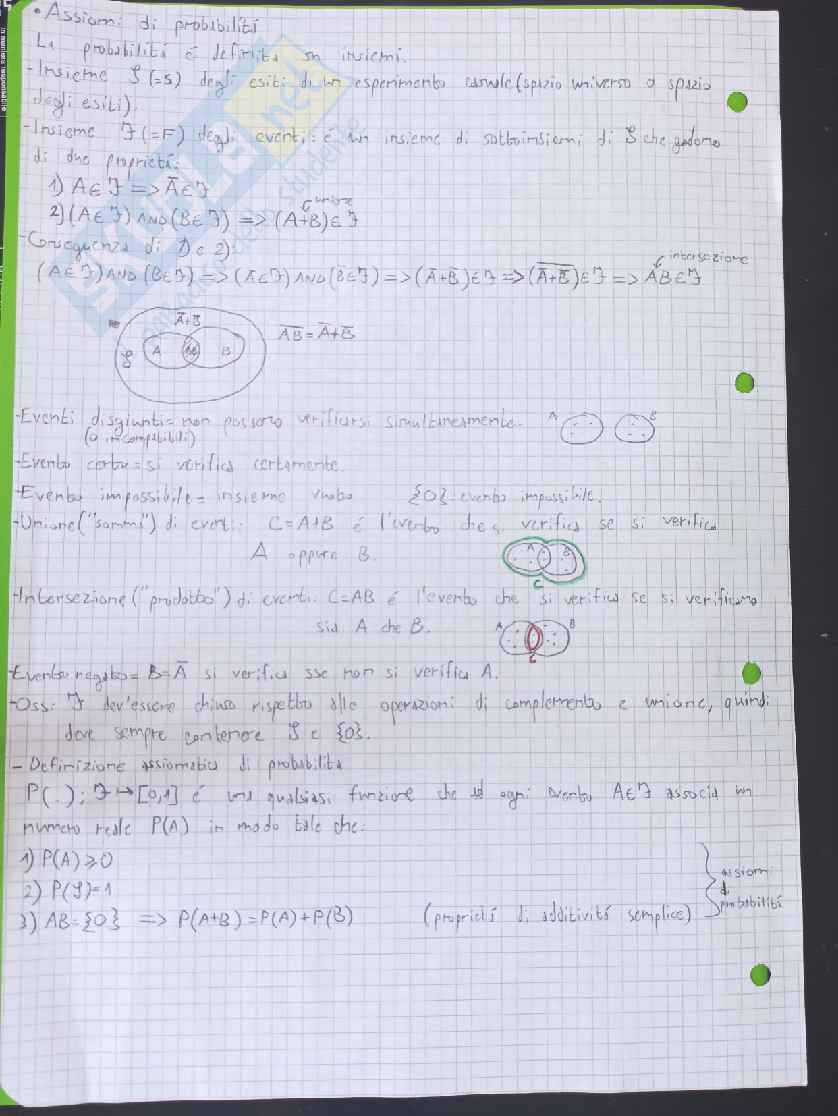 • Assiomi di probabilità
La probabilità è definita su insiemi.
- Insieme 𝒮(=S) degli esiti di un esperimento casuale (spazio universo o spazio
degli esiti).
- Insieme ℱ(=F) degli eventi: è un insieme di sottoinsiemi di 𝒮 che godono
di due proprietà:
1) A∈ℱ => A̅∈ℱ
unione
2) (A∈ℱ) AND (B∈ℱ) => (A+B)∈ℱ
- Conseguenza di 1) e 2):
intersezione
(A∈ℱ) AND (B∈ℱ) => (A̅∈ℱ) AND (B̅∈ℱ) => (A̅+B̅)∈ℱ => (\overline{A̅+B̅})∈ℱ => AB∈ℱ
A̅+B̅
\overline{AB} = A̅+B̅
𝒮 A AB B
- Eventi disgiunti = non possono verificarsi simultaneamente. A B
(o incompatibili)
- Evento certo = si verifica certamente.
- Evento impossibile = insieme vuoto {0}: evento impossibile.
- Unione ("somma") di eventi: C=A+B è l'evento che si verifica se si verifica
A oppure B. A B
C
- Intersezione ("prodotto") di eventi: C=AB è l'evento che si verifica se si verificano
sia A che B. A B
C
- Evento negato = B=A̅ si verifica sse non si verifica A.
- Oss: ℱ dev'essere chiuso rispetto alle operazioni di complemento e unione, quindi
deve sempre contenere 𝒮 e {0}.
- Definizione assiomatica di probabilità
P(.): ℱ↦[0,1] è una qualsiasi funzione che ad ogni evento A∈ℱ associa un
numero reale P(A) in modo tale che:
1) P(A)≥0
2) P(𝒮)=1
3) AB={0} => P(A+B)=P(A)+P(B) (proprietà di additività semplice)
assiomi
di
probabilità
SKUOLA.net